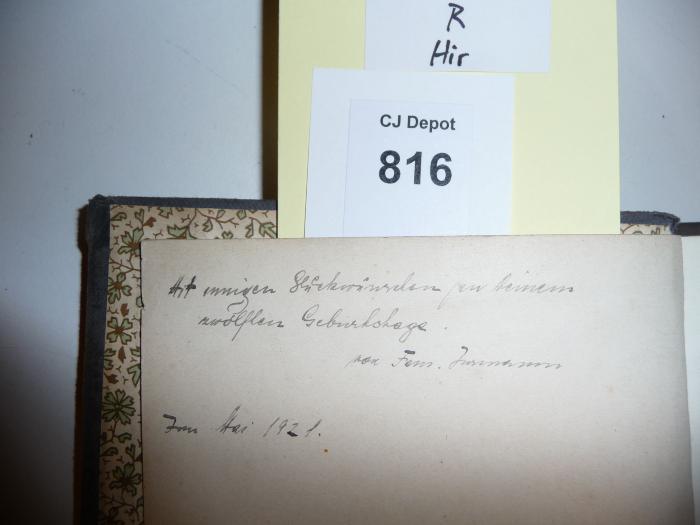 R
Hir
CJ Depot
816
Mit innigen Glückwünschen zu deinem
zwölften Geburtstage.
von Fam.
Im Mai 1921.